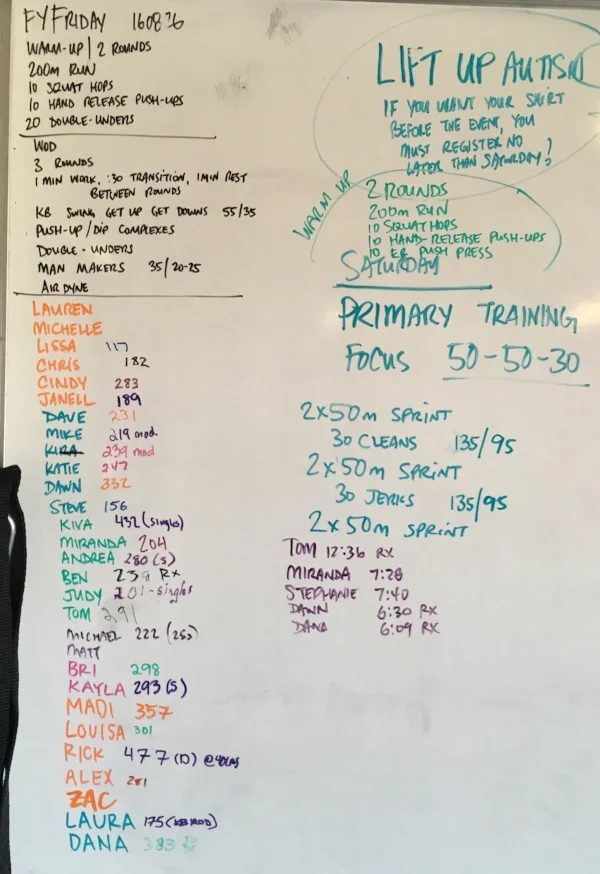 FYFRIDAY 160826
WARM-UP | 2 ROUNDS
200M RUN
10 SQUAT HOPS
10 HAND RELEASE PUSH-UPS
20 DOUBLE-UNDERS
WOD
3 ROUNDS
1 MIN WORK, :30 TRANSITION, 1 MIN REST
BETWEEN ROUNDS
KB SWING GET UP GET DOWNS 55/35
PUSH-UP/DIP COMPLEXES
DOUBLE-UNDERS
MAN MAKERS 35/20-25
AIRDYNE
LAUREN
MICHELLE
LISSA 117
CHRIS 182
CINDY 283
JANELL 189
DAVE 231
MIKE 219 mod.
KIRA 239 mod
KATIE 247
DAWN 332
STEVE 156
KIVA 432 (singles)
MIRANDA 204
ANDREA 280 (S)
BEN 239 RX
JUDY 201-singles
TOM 291
MICHAEL 222 (25s)
MATT
BRI 298
KAYLA 293 (S)
MADI 357
LOUISA 301
RICK 477 (D)
ALEX 281
ZAC
LAURA 175 (KB MOD)
DANA 383
LIFT UP AUTISM
IF YOU WANT YOUR SHIRT
BEFORE THE EVENT, YOU
MUST REGISTER NO
LATER THAN SATURDAY!
WARM UP
2 ROUNDS
200m RUN
10 SQUAT HOPS
10 HAND-RELEASE PUSH-UPS
10 PUSH PRESS
SATURDAY
PRIMARY TRAINING
FOCUS 50-50-30
2x50m SPRINT
30 CLEANS 135/95
2x50m SPRINT
30 JERKS 135/95
2x50m SPRINT
TOM 12:36 RX
MIRANDA 7:28
STEPHANIE 7:40
DAWN 6:30 RX
DANA 6:09 RX